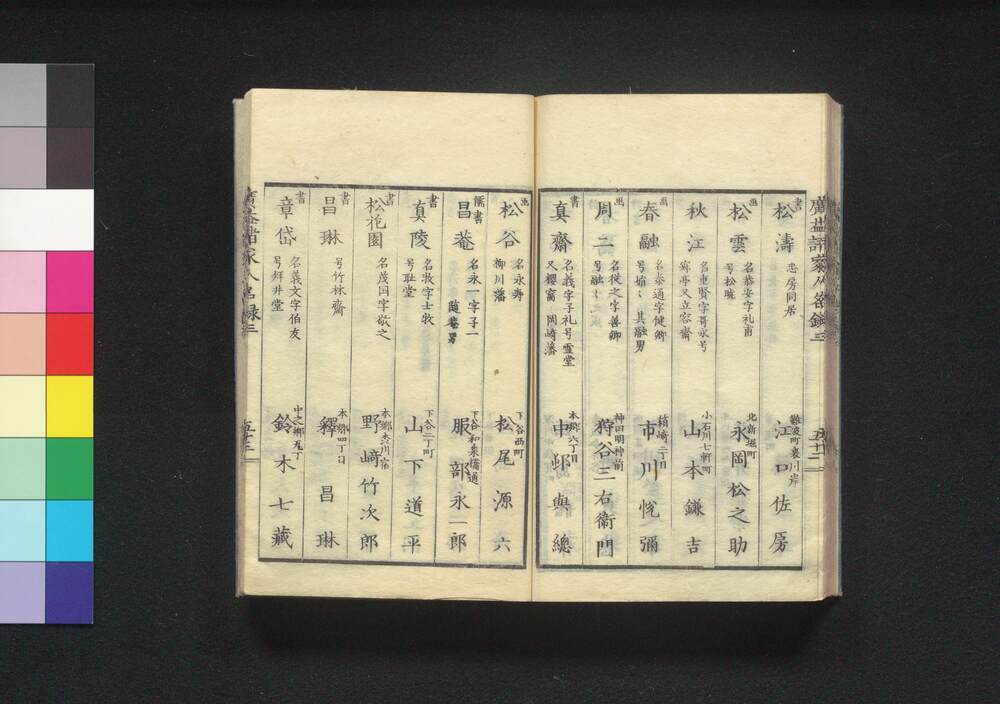 廣益諸家人名録三
五十二
書 松濤 忠房同居 難波町裏川岸 江口佐房
画 松雲 名恭安字礼甫 号松暁 北新堀町 永岡松之助
画 秋江 名重賢字哥永号 又立容齋 小石川七軒町 山本鎌吉
画 春融 名泰通字健卿 其融男 箱崎二丁目 市川悦彌
画 周二 名従之字善卿 号融々 神田明神前 狩谷三右衛門
書 真齋 名義字子礼号雪堂 又櫻窩 岡崎藩 本郷六丁目 中邨與總
画 松谷 名永寿 柳川藩 下谷西町 松尾源六
儒書 昌菴 名永一字子一 随菴男 下谷和泉橋通 服部永一郎
書 真陵 名牧字士牧 号耻堂 下谷二丁町 山下道平
書 松花園 名茂国字歌之 本郷 野﨑竹次郎
書 昌琳 号竹林齋 本郷四丁目 釋昌琳
書 章岱 名義文字伯友 号拜井堂 中之郷 鈴木七藏
廣益諸家人名録三
五十三